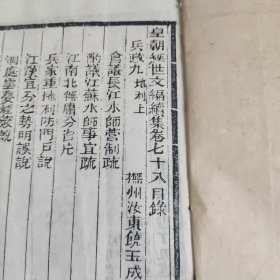 皇朝經世文編續集卷七十八目錄
撫州汝東饒玉成
兵政九地利上
會議長江水師營制疏
酌議江蘇水師事宜疏
江南北毋庸分省片
兵家重地利防門戶說
江淮宜合之勢明誤說
洞庭雲夢